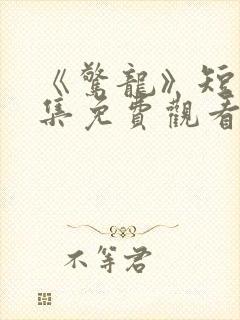 《驚龍》短
集免費觀看
不等君